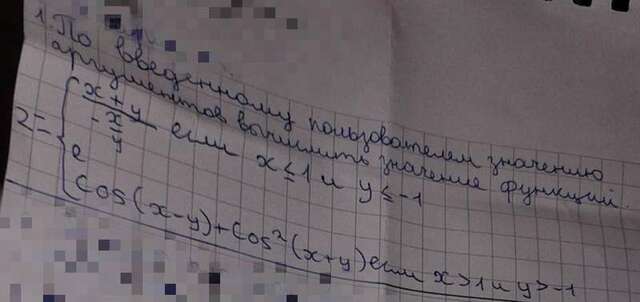 1. По введенному пользователем значению
аргументов вычислить значение функции.
z = { x + y / e^(-x/y) если x ≤ 1 и y ≤ -1
cos(x-y)+cos²(x+y) если x > 1 и y > -1